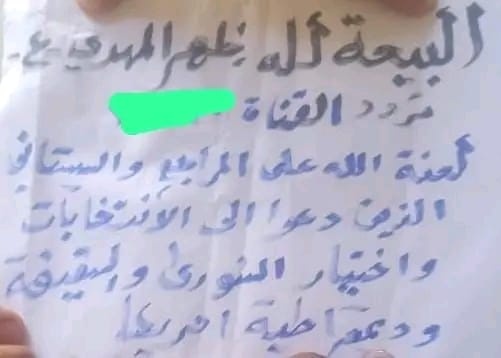 البيعة لله يظهر المهدي ع
تردد القناة
لعنة الله على المراجع والسيستاني
الذين دعوا الى الانتخابات
واختيار الشورى والسقيفة
وديمقراطية امريكا